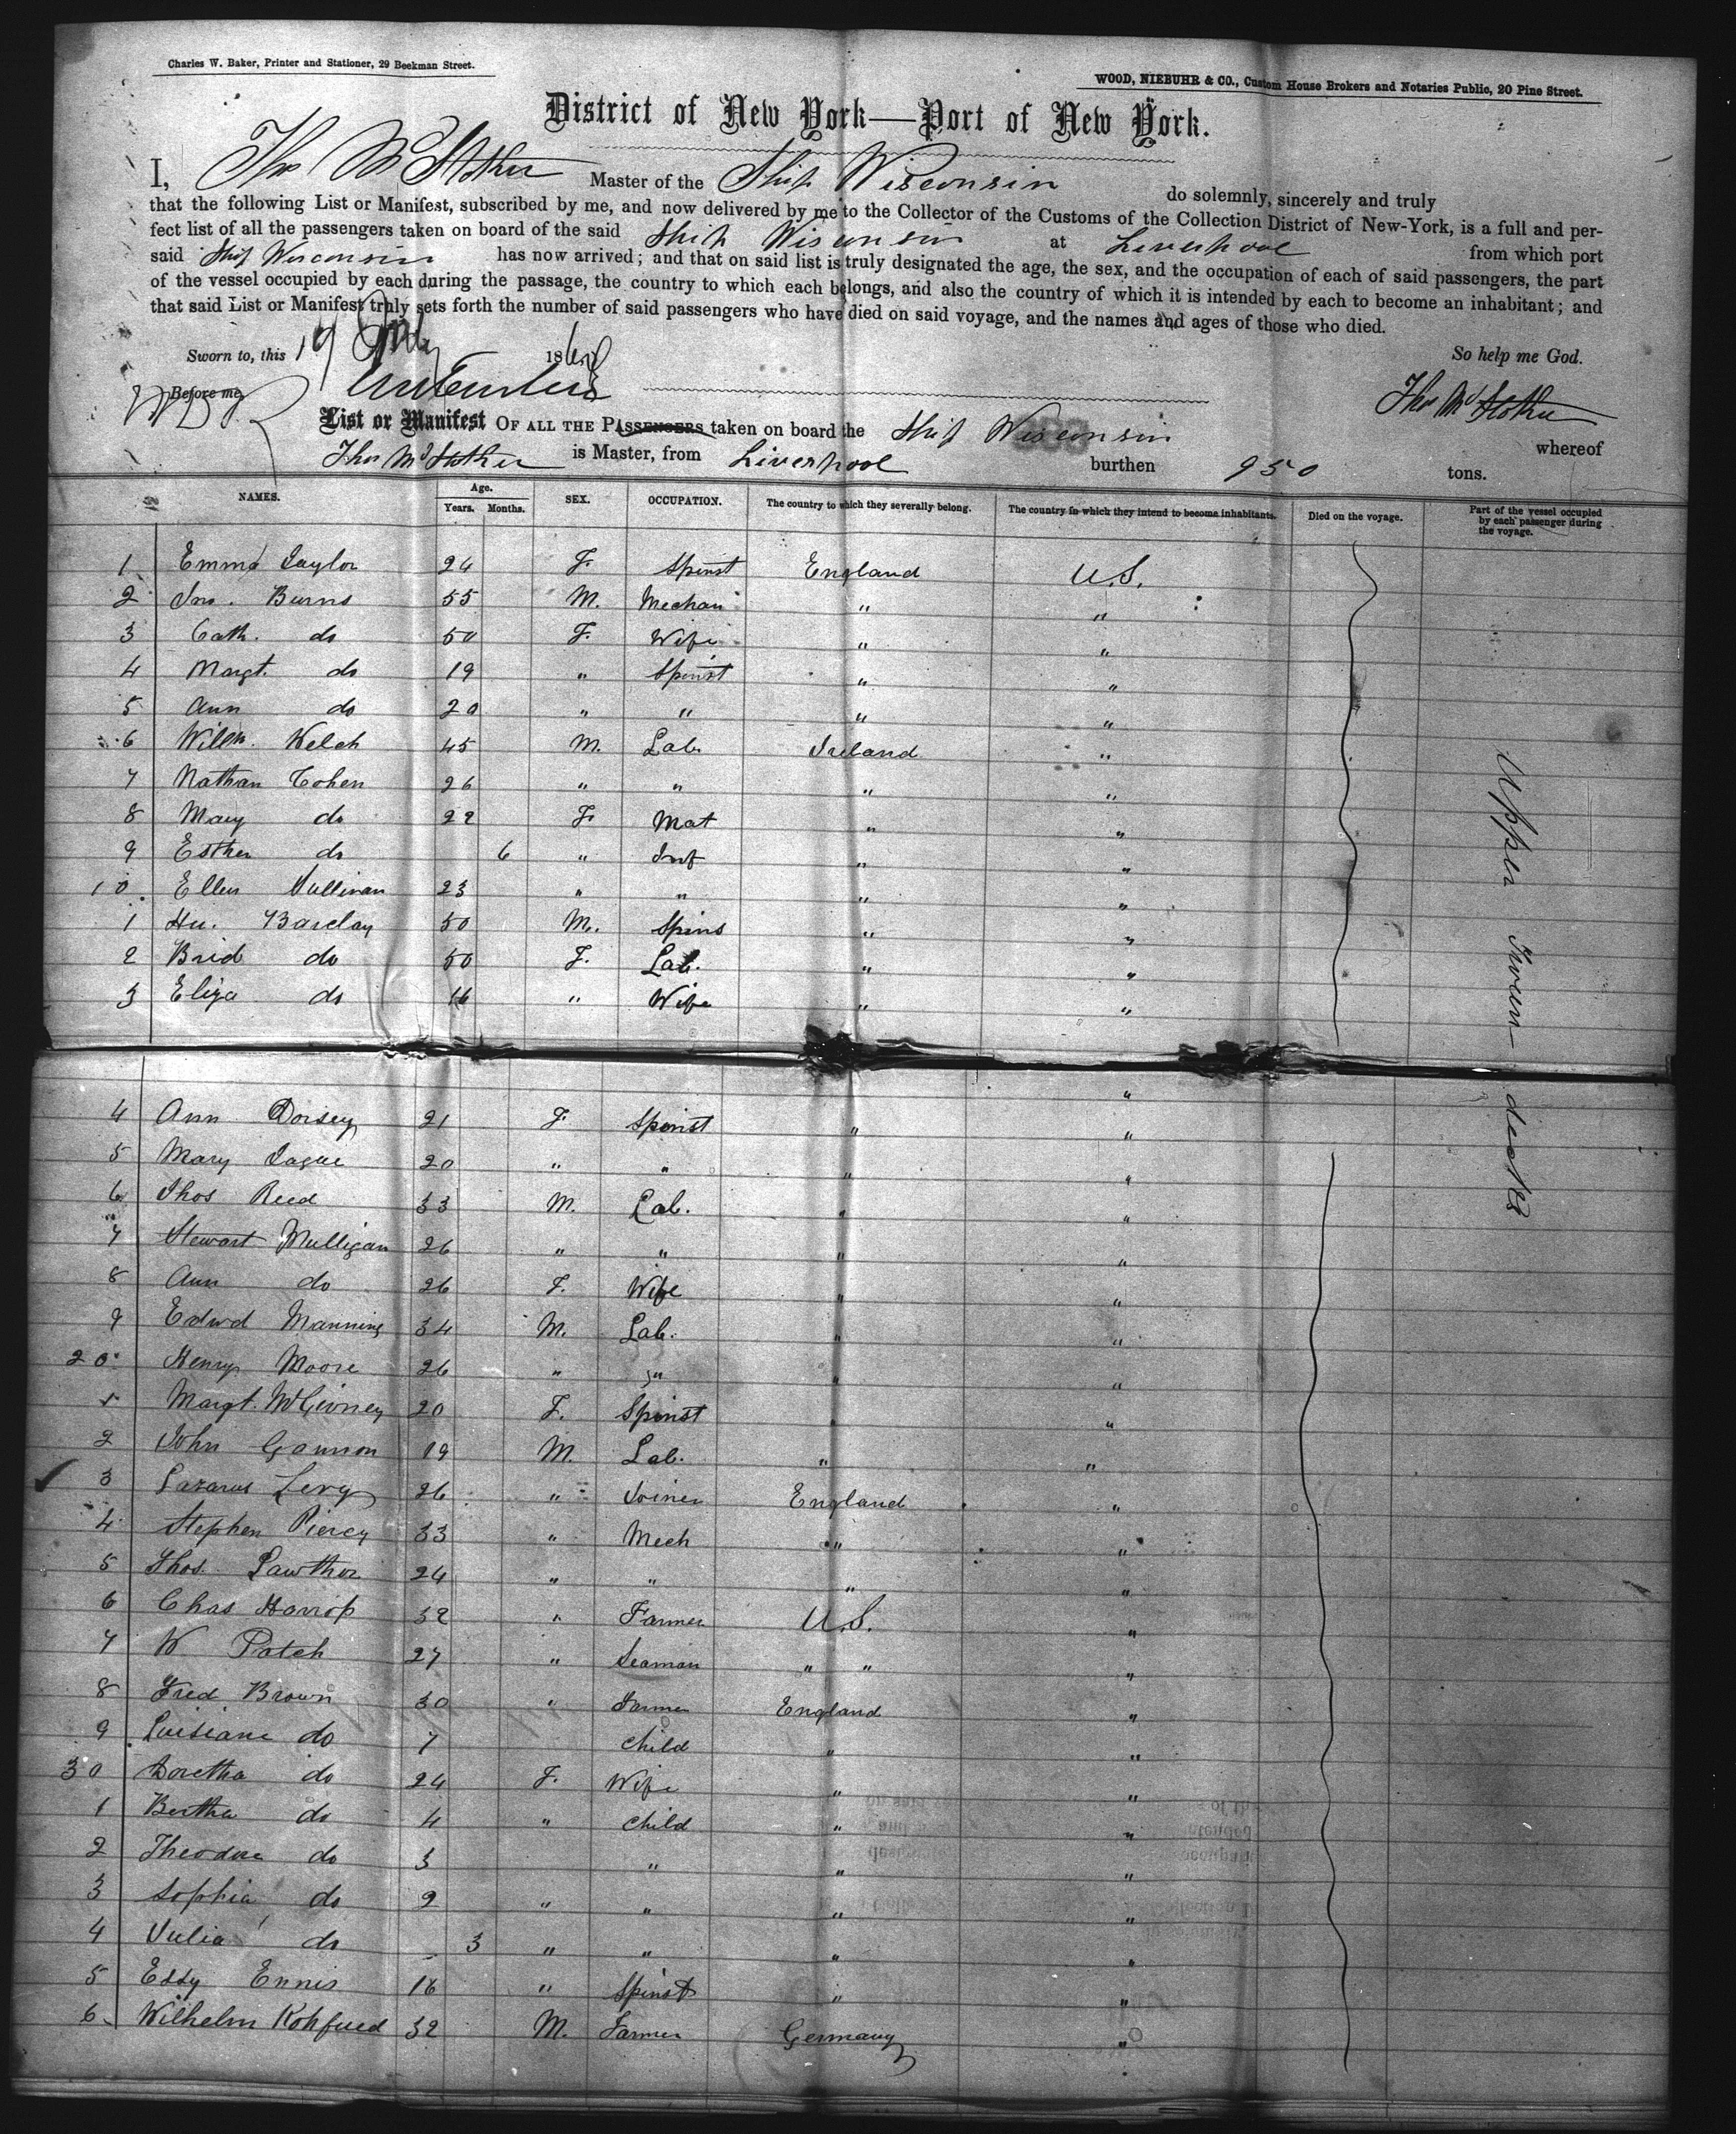 Charles W. Baker, Printer and Stationer, 29 Beekman Street.
WOOD, NIEBUHR & CO., Custom House Brokers and Notaries Public, 20 Pine Street.
District of New York—Port of New York.
I, Thos Master of the Ship Wisconsin do solemnly, sincerely and truly
that the following List or Manifest, subscribed by me, and now delivered by me to the Collector of the Customs of the Collection District of New-York, is a full and per-
fect list of all the passengers taken on board of the said Ship Wisconsin at Liverpool from which port
said Ship Wisconsin has now arrived; and that on said list is truly designated the age, the sex, and the occupation of each of said passengers, the part
of the vessel occupied by each during the passage, the country to which each belongs, and also the country of which it is intended by each to become an inhabitant; and
that said List or Manifest truly sets forth the number of said passengers who have died on said voyage, and the names and ages of those who died.
Sworn to, this 19 186
So help me God.
Before me,
List or Manifest OF ALL THE PASSENGERS taken on board the Ship Wisconsin whereof
is Master, from Liverpool burthen 950 tons.
NAMES. Age. Years. Months. SEX. OCCUPATION. The country to which they severally belong. The country in which they intend to become inhabitants. Died on the voyage. Part of the vessel occupied by each passenger during the voyage.
1 Emma Taylor 24 F. Spinst England U.S.
2 Jno. Burns 55 M. Mechan " "
3 Cath. do 50 F. Wife " "
4 Margt. do 19 " Spinst " "
5 Ann do 20 " " " "
6 Willm. Welch 45 M. Lab. Ireland "
7 Nathan Cohen 26 " " " "
8 Mary do 22 F. Mat " "
9 Esther do 6 " Inf " "
10 Ellen Sullivan 23 " " " "
1 Hu. Barclay 50 M. Spins " "
2 Brid do 50 F. Lab. " "
3 Eliza do 16 " Wife " "
"
4 Ann Dorsey 21 F. Spinst " "
5 Mary 20 " " " "
6 Thos Reed 33 M. Lab. " "
7 Stewart Mulligan 26 " " " "
8 Ann do 26 F. Wife " "
9 Edwd Manning 34 M. Lab. " "
20 Henry Moore 26 " " " "
1 Margt. McGivney 20 F. Spinst " "
2 John Gannon 19 M. Lab. " "
3 Lazarus Levy 26 " Joiner England "
4 Stephen Piercy 33 " Mech " "
5 Thos. Lawther 24 " " " "
6 Chas Harrop 32 " Farmer U.S. "
7 W Patch 27 " Seaman " " "
8 Fred Brown 30 " Farmer England "
9 Luisiane do 7 Child " "
30 Doretha do 24 F. Wife " "
1 Bertha do 4 " Child " "
2 Theodore do 3 " " "
3 Sophia do 2 " " " "
4 Julia do 3 " " " "
5 Essy Ennis 16 " Spinst " "
6 Wilhelm 32 M. Farmer Germany "
Upper Tween-decks